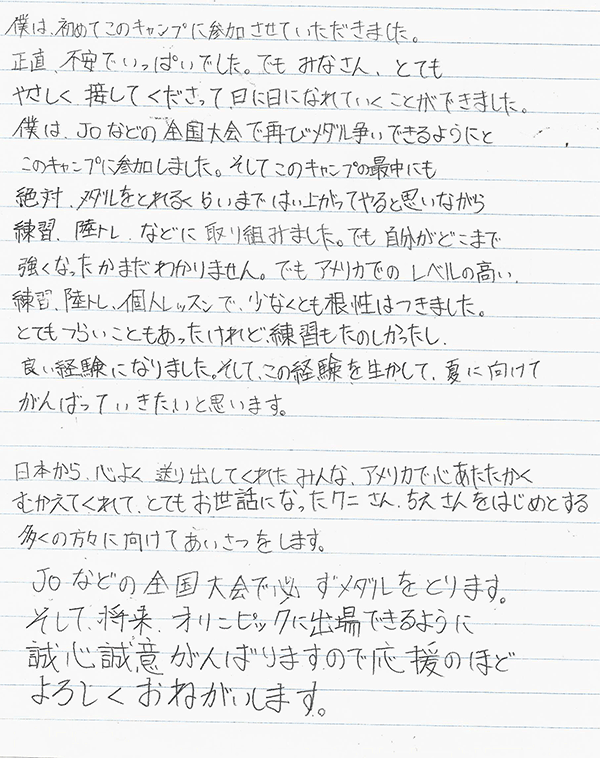 僕は、初めてこのキャンプに参加させていただきました。
正直、不安でいっぱいでした。でも みなさん、とても
やさしく 接してくださって 日に日になれていくことができました。
僕は、JOなどの全国大会で再びメダル争いできるようにと
このキャンプに参加しました。そしてこのキャンプの最中にも
絶対、メダルをとれるくらいまではい上がってやると思いながら
練習、陸トレ、などに取り組みました。でも 自分がどこまで
強くなったかまだわかりません。でもアメリカでの レベルの高い、
練習、陸トレ、個人レッスンで、少なくとも根性はつきました。
とてもつらいこともあったけれど、練習もたのしかったし、
良い経験になりました。そして、この経験を生かして、夏に向けて
がんばっていきたいと思います。
日本から、心よく 送り出してくれたみんな、アメリカで心あたたかく
むかえてくれて、とてもお世話になったクニさん、ちえさんをはじめとする
多くの方々に向けてあいさつをします。
JOなどの全国大会で必ずメダルをとります。
そして、将来、オリンピックに出場できるように
誠心誠意がんばりますので応援のほど
よろしくおねがいします。